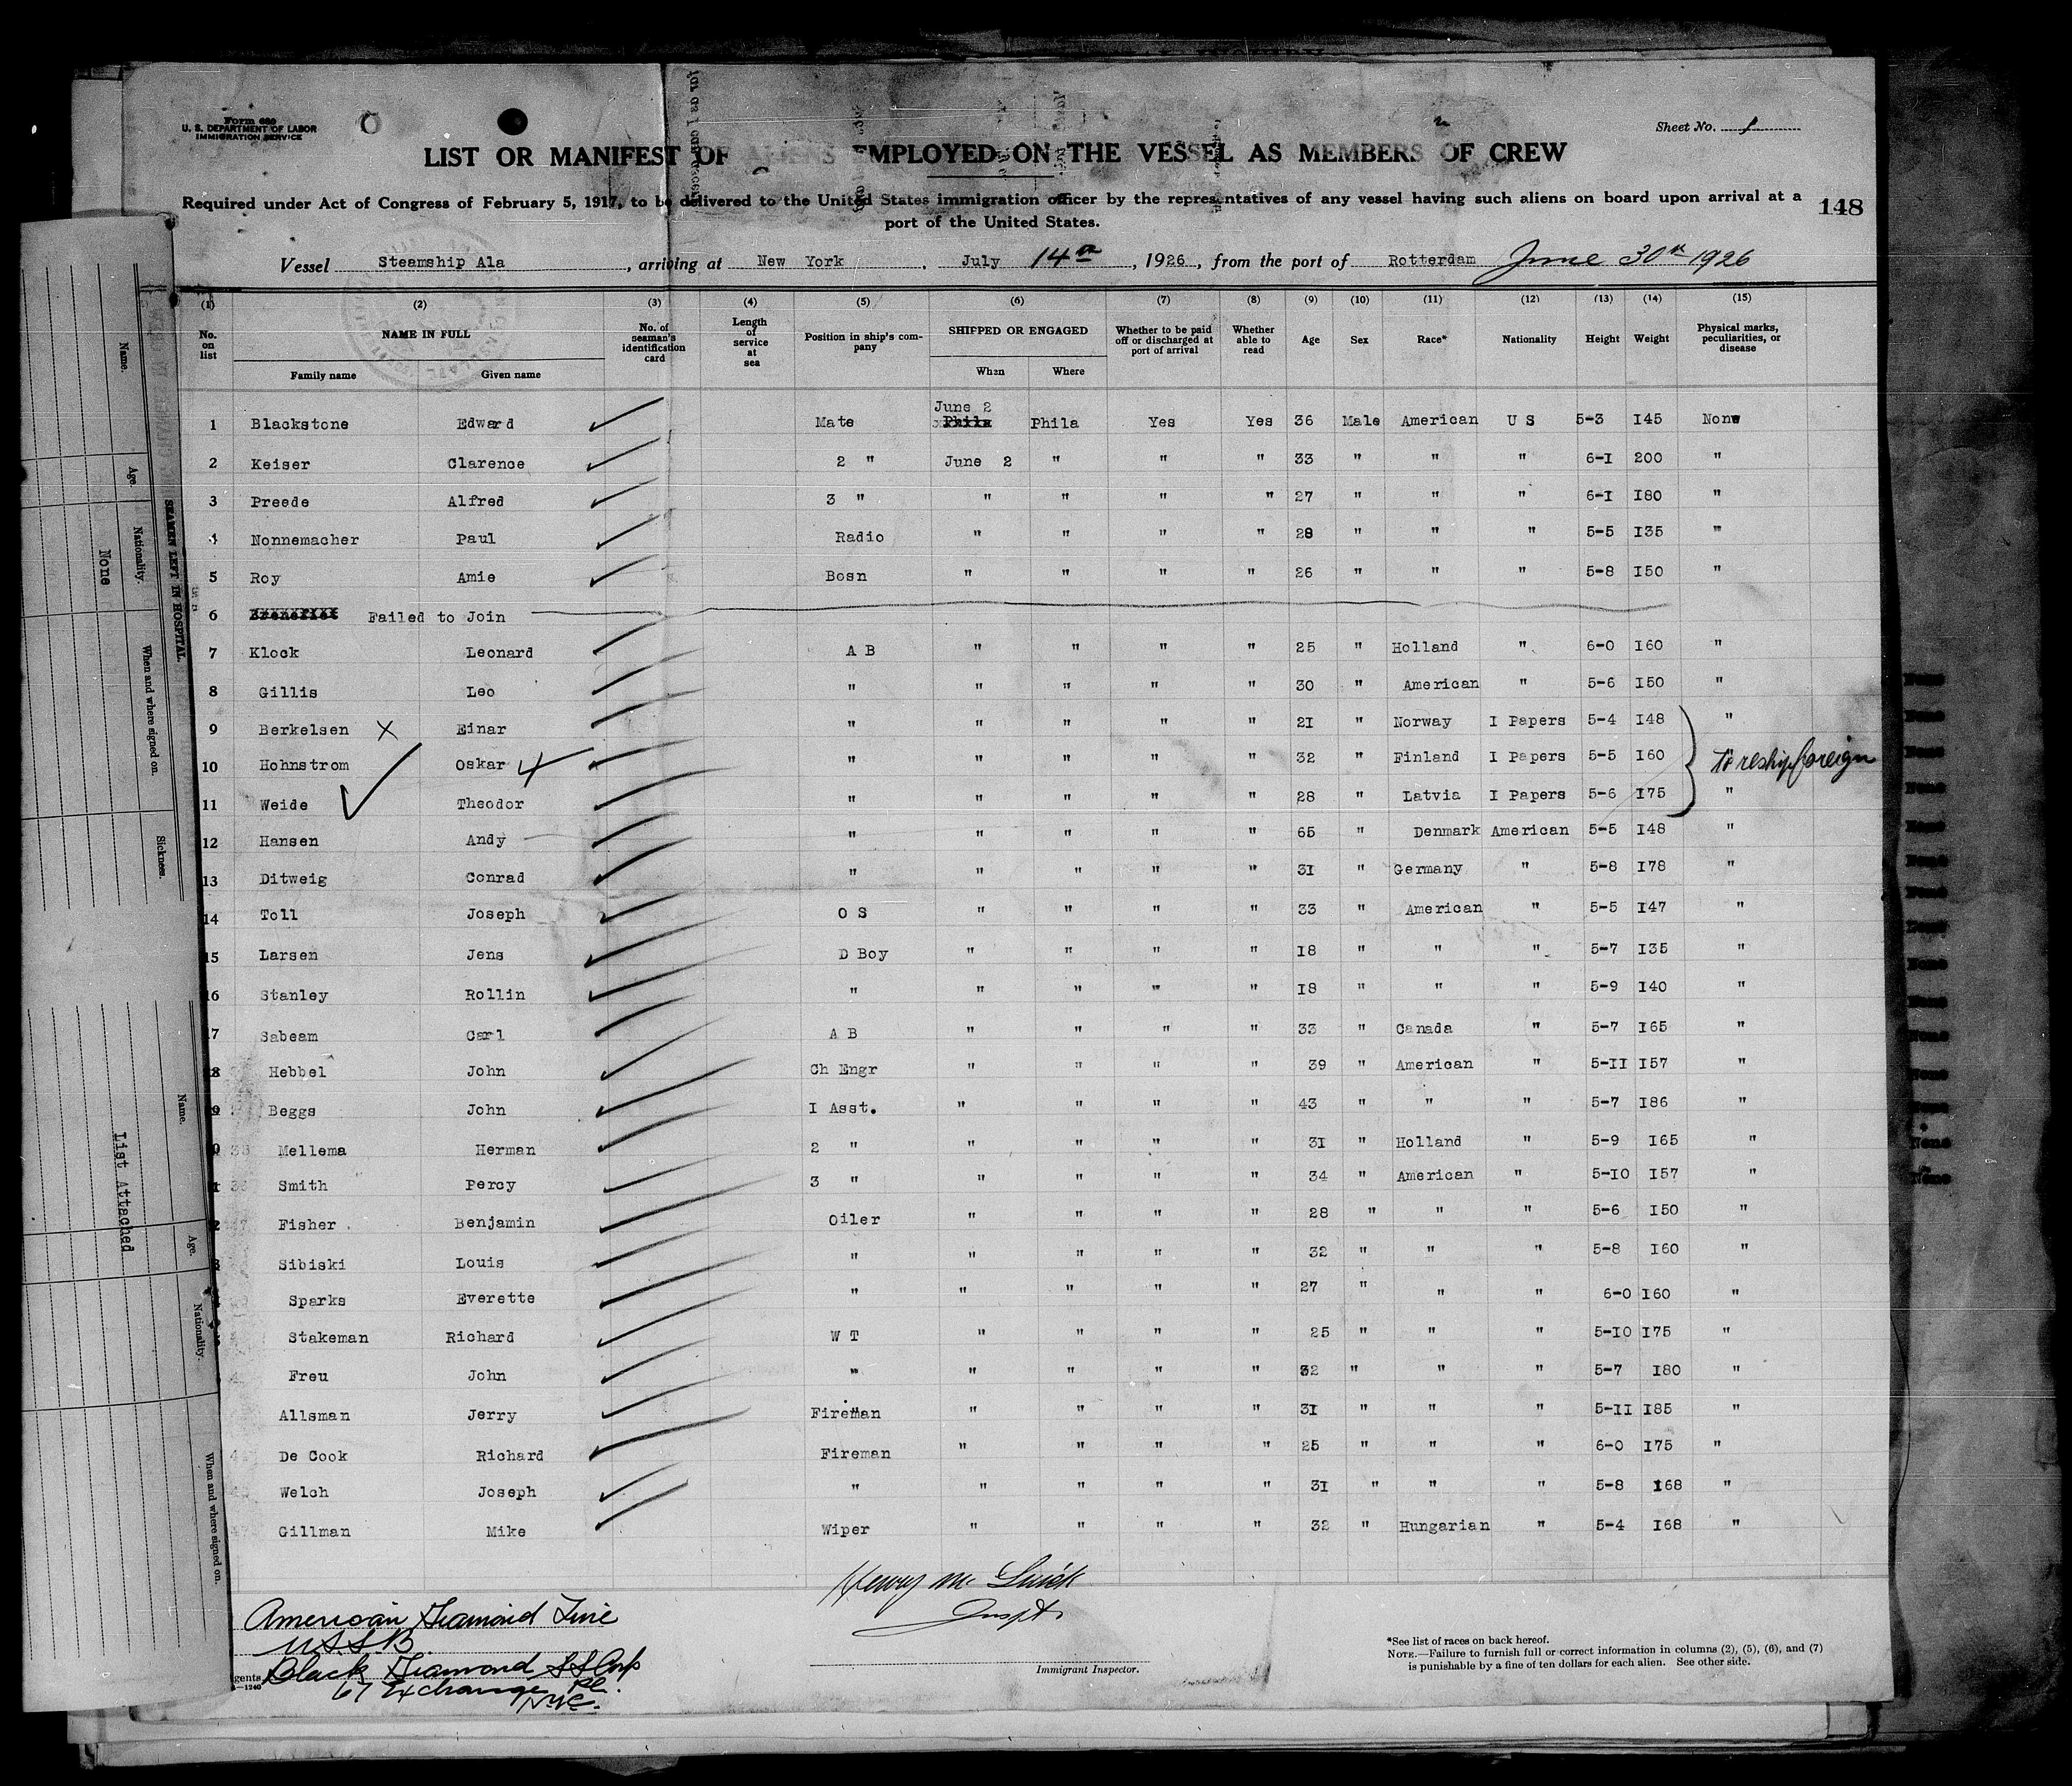 Form 680
U. S. DEPARTMENT OF LABOR
IMMIGRATION SERVICE
Sheet No. 1
LIST OR MANIFEST OF ALIENS EMPLOYED ON THE VESSEL AS MEMBERS OF CREW
Required under Act of Congress of February 5, 1917, to be delivered to the United States immigration officer by the representatives of any vessel having such aliens on board upon arrival at a
port of the United States.
148
Vessel Steamship Ala, arriving at New York, July 14th, 1926, from the port of Rotterdam June 30th 1926
(1) (2) (3) (4) (5) (6) (7) (8) (9) (10) (11) (12) (13) (14) (15)
No. on list NAME IN FULL Family name Given name No. of seaman's identification card Length of service at sea Position in ship's company SHIPPED OR ENGAGED When Where Whether to be paid off or discharged at port of arrival Whether able to read Age Sex Race* Nationality Height Weight Physical marks, peculiarities, or disease
June 2
1 Blackstone Edward Mate Phila Phila Yes Yes 36 Male American U S 5-3 145 None
2 Keiser Clarence 2 " June 2 " " " 33 " " " 6-1 200 "
3 Preede Alfred 3 " " " " " 27 " " " 6-1 180 "
4 Nonnemacher Paul Radio " " " " 28 " " " 5-5 135 "
5 Roy Amie Bosn " " " " 26 " " " 5-8 150 "
6 Failed to Join
7 Klock Leonard A B " " " " 25 " Holland " 6-0 160 "
8 Gillis Leo " " " " " 30 " American " 5-6 150 "
9 Berkelsen X Einar " " " " " 21 " Norway I Papers 5-4 148 "
10 Hohnstrom Oskar " " " " " 32 " Finland I Papers 5-5 160 To reship foreign
11 Weide Theodor " " " " " 28 " Latvia I Papers 5-6 175 "
12 Hansen Andy " " " " " 65 " Denmark American 5-5 148 "
13 Ditweig Conrad " " " " " 31 " Germany " 5-8 178 "
14 Toll Joseph O S " " " " 33 " American " 5-5 147 "
15 Larsen Jens D Boy " " " " 18 " " " 5-7 135 "
16 Stanley Rollin " " " " " 18 " " " 5-9 140 "
17 Sabeam Carl A B " " " " 33 " Canada " 5-7 165 "
18 Hebbel John Ch Engr " " " " 39 " American " 5-11 157 "
19 Beggs John I Asst. " " " " 43 " " " 5-7 186 "
Mellema Herman 2 " " " " " 31 " Holland " 5-9 165 "
Smith Percy 3 " " " " " 34 " American " 5-10 157 "
Fisher Benjamin Oiler " " " " 28 " " " 5-6 150 "
Sibiski Louis " " " " " 32 " " " 5-8 160 "
Sparks Everette " " " " " 27 " " " 6-0 160 "
Stakeman Richard W T " " " " 25 " " " 5-10 175 "
Freu John " " " " " 32 " " " 5-7 180 "
Allsman Jerry Fireman " " " " 31 " " " 5-11 185 "
De Cook Richard Fireman " " " " 25 " " " 6-0 175 "
Welch Joseph " " " " " 31 " " " 5-8 168 "
Gillman Mike Wiper " " " " 32 " Hungarian " 5-4 168 "
American Diamond Line
U.S.S.B.
Agents Black Diamond SS Corp
67 Exchange Pl.
N.Y.C.
Inspt.
Immigrant Inspector.
*See list of races on back hereof.
NOTE.—Failure to furnish full or correct information in columns (2), (5), (6), and (7)
is punishable by a fine of ten dollars for each alien. See other side.
SEAMEN LEFT IN HOSPITAL
Name. Age. Nationality. When and where signed on. Sickness.
None
Name. Age. Nationality. When and where signed on.
List Attached